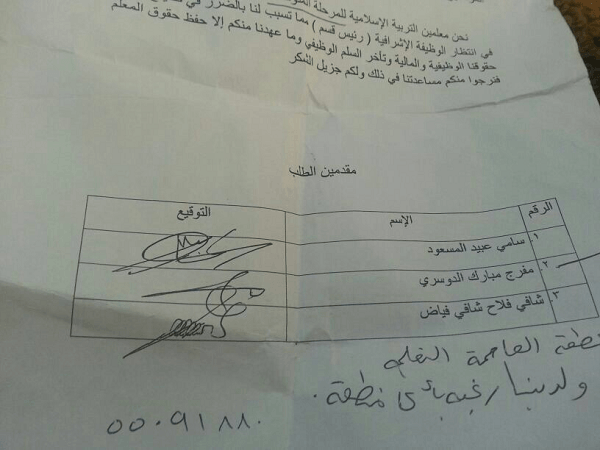 نحن معلمين التربية الإسلامية للمرحلة
في انتظار الوظيفة الإشرافية ( رئيس قسم ) مما تسبب لنا بالضرر في
حقوقنا الوظيفية والمالية وتأخر السلم الوظيفي وما عهدنا منكم إلا حفظ حقوق المعلم
فنرجوا منكم مساعدتنا في ذلك ولكم جزيل الشكر
مقدمين الطلب
الرقم الإسم التوقيع
١ سامي عبيد المسعود
٢ مفرج مبارك الدوسري
٣ شافي فلاح شافي فياض
العاصمة التعليمية
ولدينا رغبه بأي منطقة .
٥٥٠٩١٨٨٠